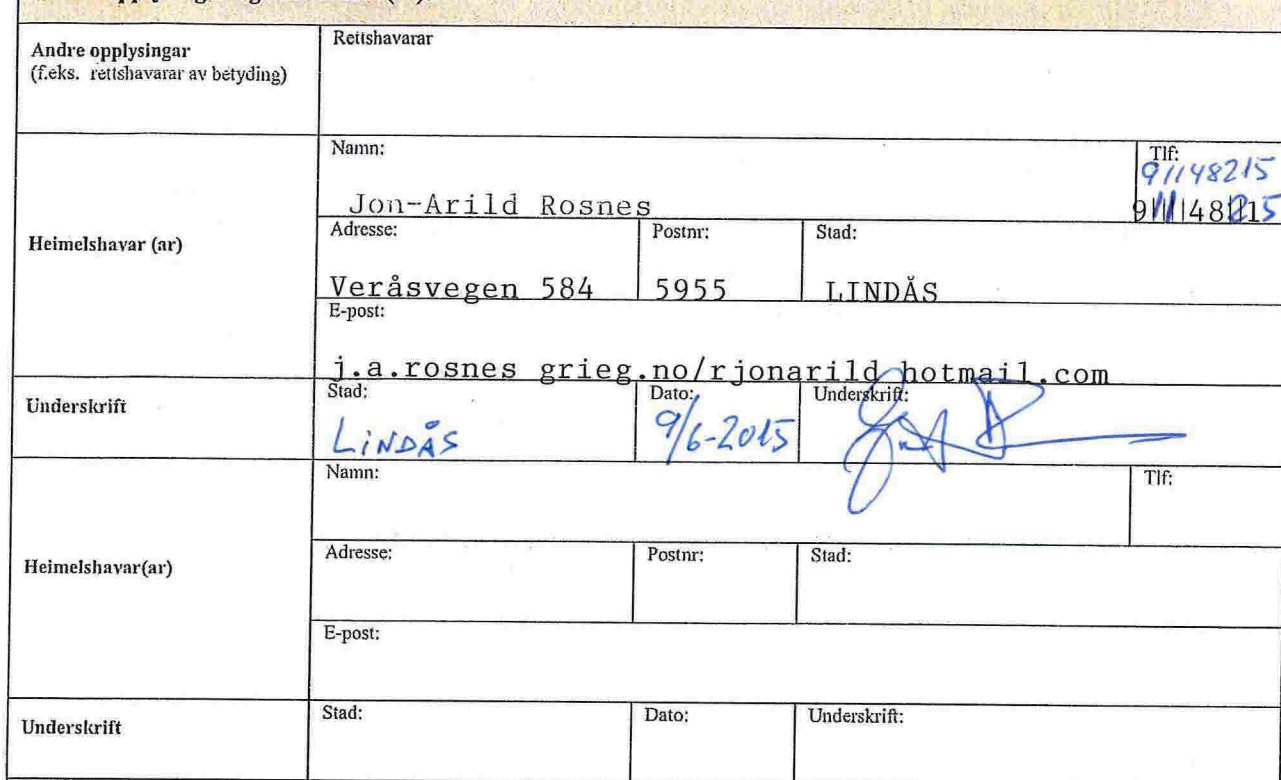 Andre opplysingar
(f.eks. rettshavarar av betyding)
Rettshavarar
Heimelshavar (ar)
Namn:
Jon-Arild Rosnes
Tlf:
91148215
Adresse:
Veråsvegen 584
Postnr:
5955
Stad:
LINDÅS
E-post:
j.a.rosnes grieg.no/rjonarild hotmail.com
Underskrift
Stad:
LINDÅS
Dato:
9/6-2015
Underskrift:
Heimelshavar(ar)
Namn:
Tlf:
Adresse:
Postnr:
Stad:
E-post:
Underskrift
Stad:
Dato:
Underskrift: